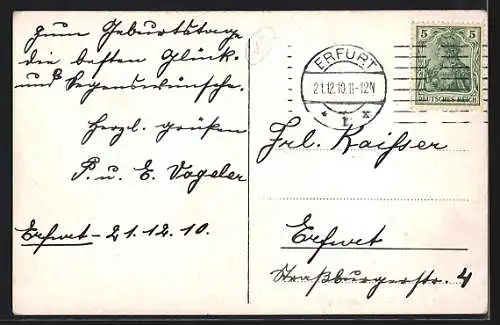 Zum Geburtstage
die besten Glück-
und Segenswünsche.
Herzl. grüßen
P. u. E. Vogeler
Erfurt - 21.12.10.
ERFURT
21.12.10.11-12N
* 1 x
5 5
DEUTSCHES REICH
Frl. Kaißer
Erfurt
Straßburgerstr. 4